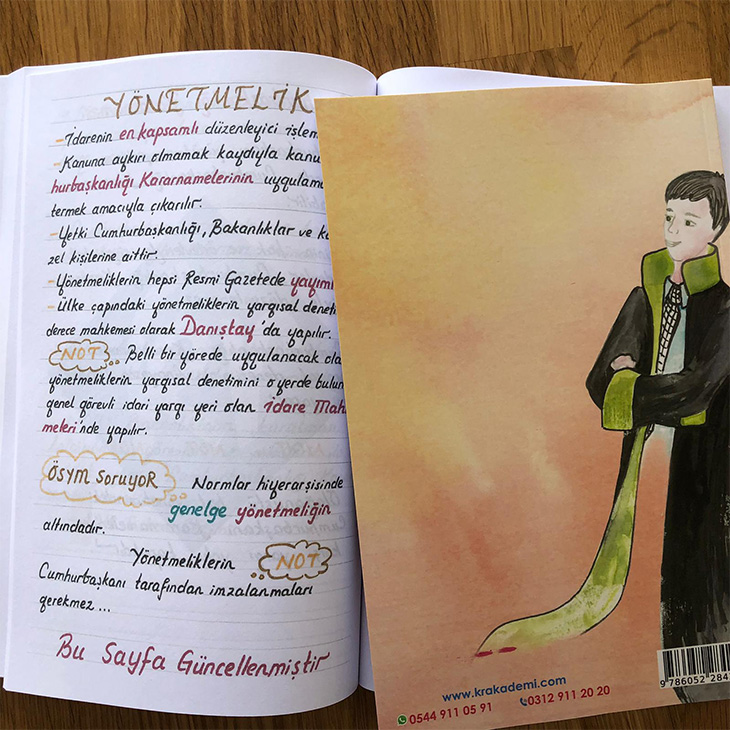 YÖNETMELİK
-İdarenin en kapsamlı düzenleyici işlem
-Kanuna aykırı olmamak kaydıyla kanu
hurbaşkanlığı Kararnamelerinin uygulama
termek amacıyla çıkarılır.
-Yetki Cumhurbaşkanlığı, Bakanlıklar ve
zel kişilerine aittir.
-Yönetmeliklerin hepsi Resmi Gazetede yayım
-Ülke çapındaki yönetmeliklerin yargısal deneti
derece mahkemesi olarak Danıştay'da yapılır.
NOT Belli bir yörede uygulanacak ola
yönetmeliklerin yargısal denetimini o yerde bulun
genel görevli idari yargı yeri olan İdare Mah
meleri'nde yapılır.
ÖSYM SORUYOR Normlar hiyerarşisinde
genelge yönetmeliğin
altındadır.
Yönetmeliklerin NOT
Cumhurbaşkanı tarafından imzalanmaları
gerekmez...
Bu Sayfa Güncellenmiştir
www.krakademi.com
0544 911 05 91 0312 911 20 20
9 786052 284